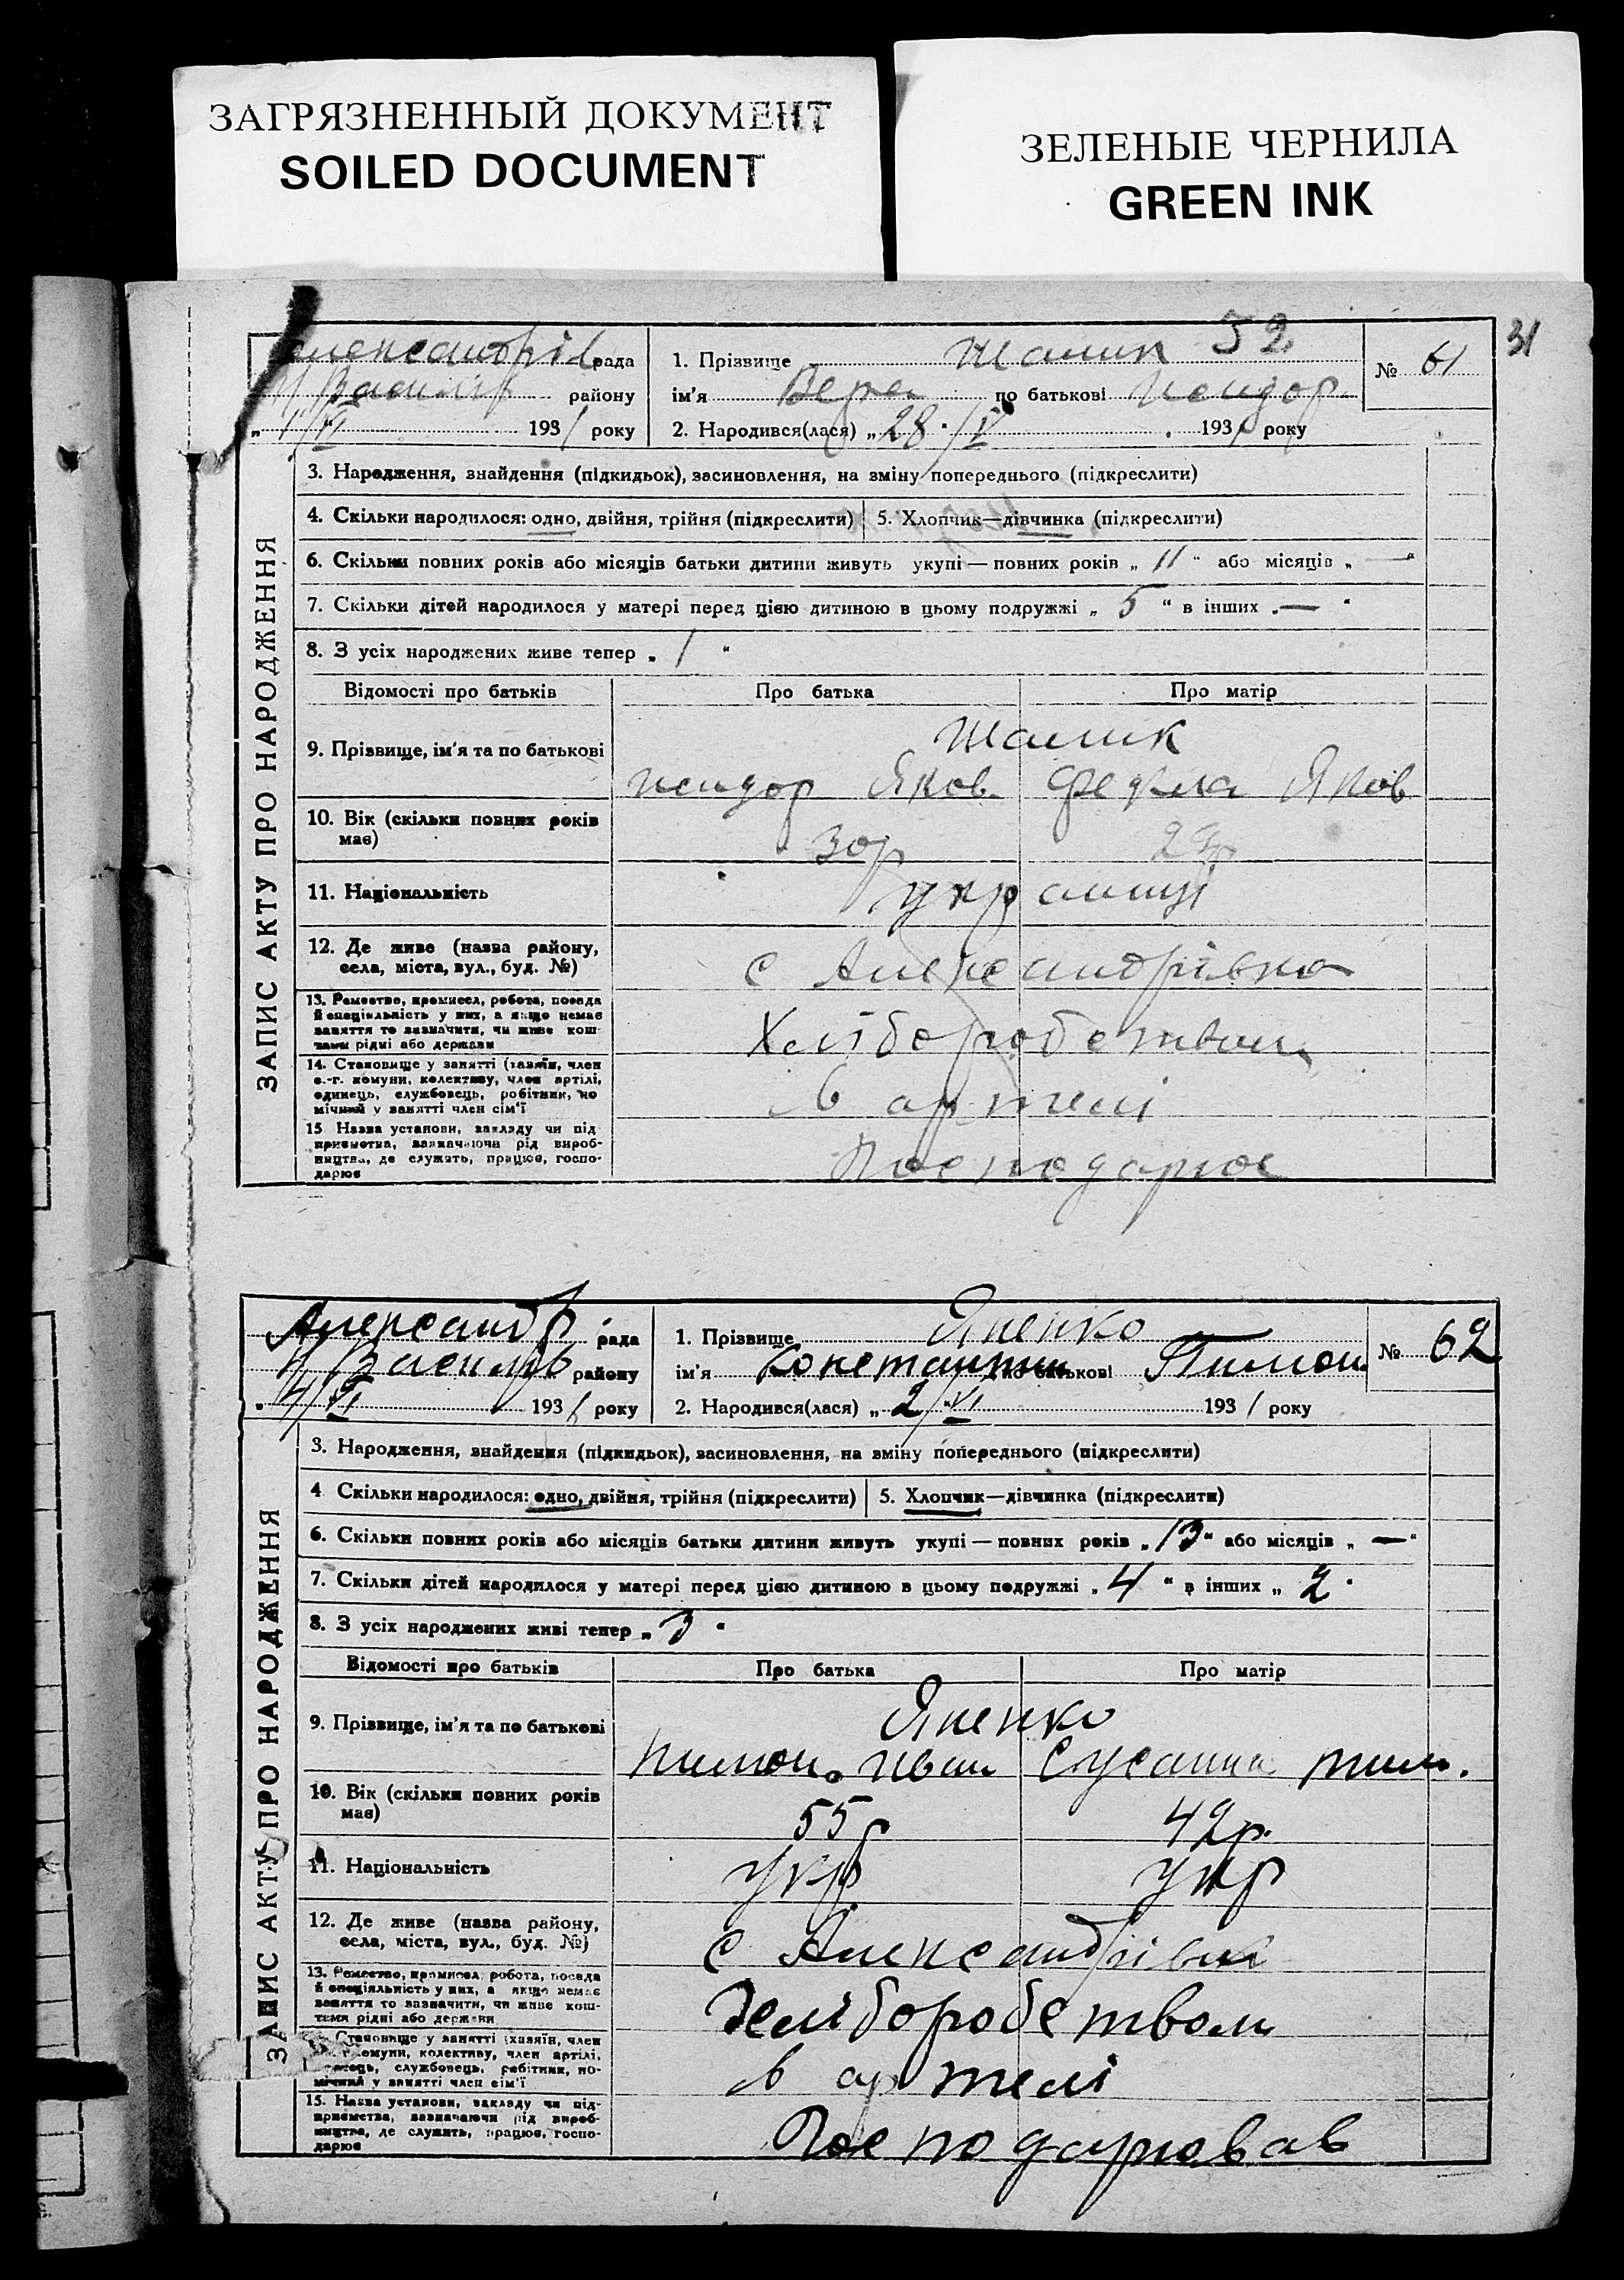 ЗАГРЯЗНЕННЫЙ ДОКУМЕНТ
SOILED DOCUMENT
ЗЕЛЕНЫЕ ЧЕРНИЛА
GREEN INK
31
52
Александрів рада
1. Прізвище Шамик
№ 61
Н/Василів району
ім'я Вера по батькові Исидор.
„ 1/VI 1931 року
2. Народився(лася) „ 28/V 1931 року
ЗАПИС АКТУ ПРО НАРОДЖЕННЯ
3. Народження, знайдення (підкидьок), засиновлення, на зміну попереднього (підкреслити)
4. Скільки народилося: одно, двійня, трійня (підкреслити) 5. Хлопчик—дівчинка (підкреслити)
6. Скільки повних років або місяців батьки дитини живуть укупі — повних років „ 11 “ або місяців „ — “
7. Скільки дітей народилося у матері перед цією дитиною в цьому подружжі „ 5 “ в інших „ — “
8. З усіх народжених живе тепер „ 1 “
Відомості про батьків Про батька Про матір
Шамик
9. Прізвище, ім'я та по батькові
Исидор Яков. Фекла Яков
10. Вік (скільки повних років
має)
30р
11. Національність
українці
12. Де живе (назва району,
села, міста, вул., буд. №)
с Александрівка
13. Ремество, промисел, робота, посада
й спеціяльність у них, а якщо немає
заняття то зазначити, чи живе кош-
тами рідні або держави
Хліборобством
14. Становище у занятті (хазяїн, член
с.-г. комуни, колективу, член артілі,
одинець, службовець, робітник, по
мічний у занятті член сім'ї
в артелі
15 Назва установи, закладу чи під
приємства, зазначаючи рід вироб-
ництва, де служить, працює, госпо-
дарює
Господарює
Александр рада
1. Прізвище Яненко
№ 62
Н/Василів району
ім'я Константин по батькові Пимон
„ 4/VI 1931 року
2. Народився(лася) „ 2/VI 1931 року
ЗАПИС АКТУ ПРО НАРОДЖЕННЯ
3. Народження, знайдення (підкидьок), засиновлення, на зміну попереднього (підкреслити)
4 Скільки народилося: одно, двійня, трійня (підкреслити) 5. Хлопчик—дівчинка (підкреслити)
6. Скільки повних років або місяців батьки дитини живуть укупі — повних років „ 13 “ або місяців „ — “
7. Скільки дітей народилося у матері перед цією дитиною в цьому подружжі „ 4 “ в інших „ 2 “
8. З усіх народжених живі тепер „ 3 “
Відомості про батьків Про батька Про матір
Яненко
9. Прізвище, ім'я та по батькові
Пимон. Иван Сусанна тим.
10. Вік (скільки повних років
має)
55р 42р.
11. Національність
укр укр
12. Де живе (назва району,
села, міста, вул., буд. №)
с Александрівка
13. Ремество, промисел, робота, посада
й спеціяльність у них, а якщо немає
заняття то зазначити, чи живе кош-
тами рідні або держави
Хліборобством
Становище у занятті (хазяїн, член
комуни, колективу, член артілі,
службовець, робітник, по-
мічний у занятті член сім'ї
в артелі
15. Назва установи, закладу чи під-
приємства, зазначаючи рід вироб-
ництва, де служить, працює, госпо-
дарює
Господарював